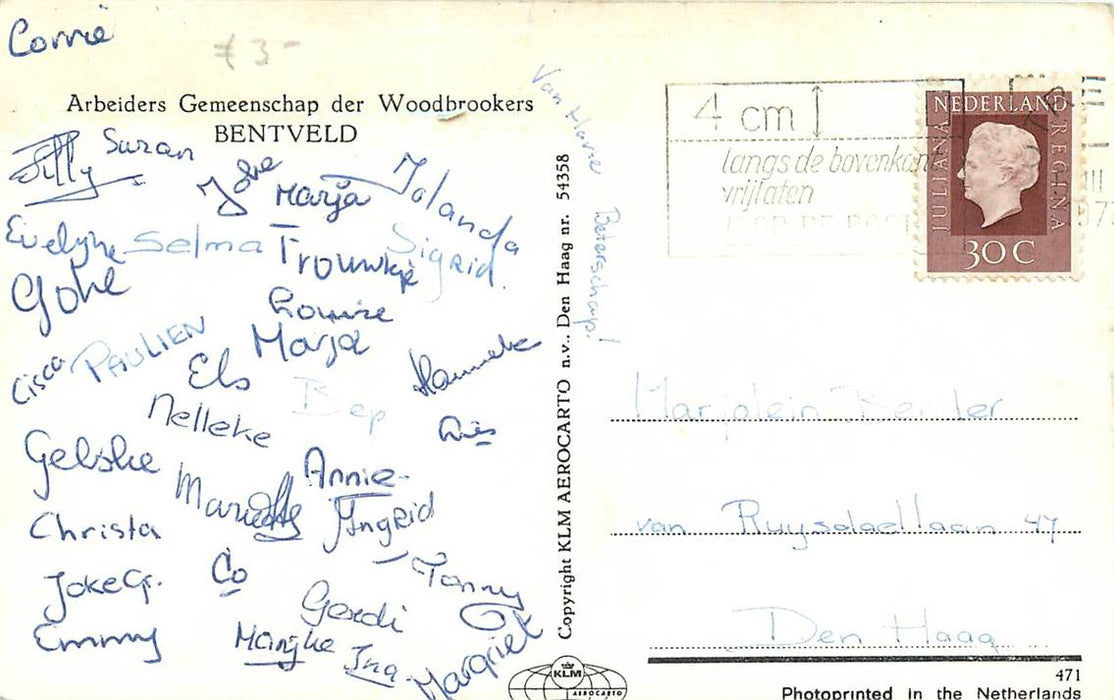 Corrie
f 3-
Arbeiders Gemeenschap der Woodbrookers
BENTVELD
Willy
Suzan
Joke
Marja
Jolanda
Evelyne
Selma
Trouwtje
Sigrid
Gohe
Louise
Marja
Cisca
PAULIEN
Els
Hanneke
Bep
Nelleke
Dies
Gelske
Annie
Mariette
Ingrid
Christa
Joke G.
Co
Tonny
Gerdi
Emmy
Marijke
Ina
Margriet
KLM
AEROCARTO
Copyright KLM AEROCARTO n.v., Den Haag nr. 54358
Van Harte Beterschap!
4 cm
langs de bovenkant
vrijlaten
NEDERLAND
JULIANA
REGINA
30 C
Marjolein
van Ruysdaellaan 47
Den Haag
471
Photoprinted in the Netherlands